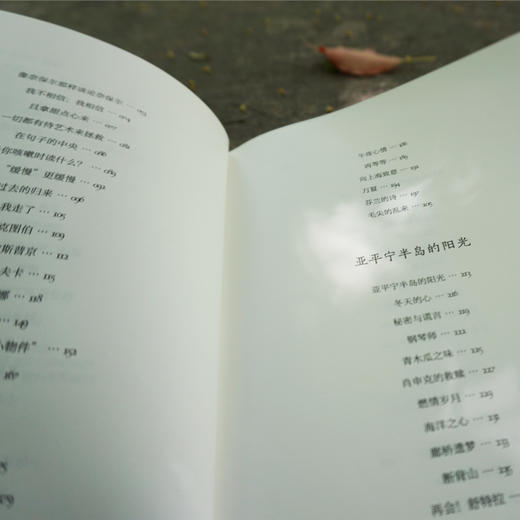 像奈保尔那样谈论奈保尔
我不相信；我相信
且拿甜点心来 … 077
一切都有待艺术来拯救
在句子的中央 … 084
你咳嗽时读什么？
“缓慢”更缓慢 … 092
过去的归来 … 096
我走了 … 105
克图伯 … 109
斯普京 … 112
夫卡
娜 … 118
… 149
小物件” … 152
… 167
午夜心情 … 186
两等等 … 189
向上海致意 … 192
万夏 … 194
芬兰的诗 … 197
毛尖的乱来 … 205
亚平宁半岛的阳光
亚平宁半岛的阳光 … 213
冬天的心 … 216
秘密与谎言 … 219
钢琴师 … 222
青木瓜之味 … 225
肖申克的救赎 … 227
燃情岁月 … 229
海洋之心 … 231
廊桥遗梦 … 233
断背山
再会！舒特拉